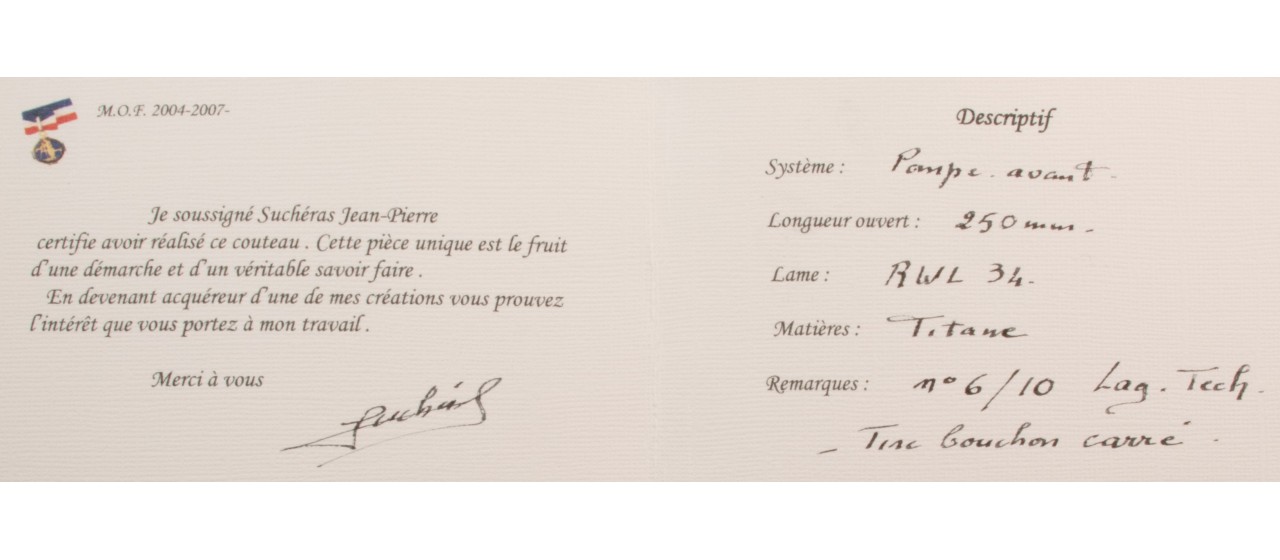 M.O.F. 2004-2007-
Je soussigné Suchéras Jean-Pierre
certifie avoir réalisé ce couteau . Cette pièce unique est le fruit
d'une démarche et d'un véritable savoir faire .
En devenant acquéreur d'une de mes créations vous prouvez
l'intérêt que vous portez à mon travail .
Merci à vous
Suchéras
Descriptif
Système : Pompe avant
Longueur ouvert : 250 mm.
Lame : RWL 34.
Matières : Titane
Remarques : n° 6/10 Lag. Tech.
- Tire bouchon carré